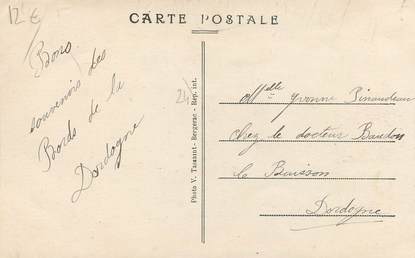 12 €
CARTE POSTALE
Bons
souvenirs des
Bords de la
Dordogne
24
Photo V. Tassaint - Bergerac - Rep. int.
Melle Yvonne Pinaudeau
chez le docteur Baudon
le Buisson
Dordogne